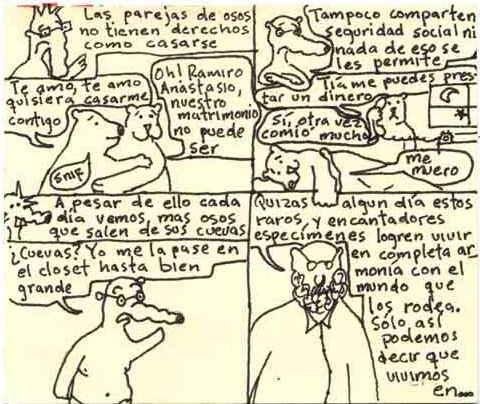 Las parejas de osos
no tienen derechos
como casarse
Te amo, te amo
quisiera casarme
contigo
Oh! Ramiro
Anastasio,
nuestro
matrimonio
no puede
ser
smif
Tampoco comparten
seguridad social ni
nada de eso se
les permite
Tía me puedes pres
tar un dinero
Si, otra vez
comio mucho
me
muero
A pesar de ello cada
día vemos, mas osos
que salen de sus cuevas
¿Cuevas? Yo me la pase en
el closet hasta bien
grande
Quizas algun día estos
raros, y encantadores
especimenes logren vivir
en completa ar
monia con el
mundo que
los rodea.
Sólo, así
podemos
decir que
vivimos
en...